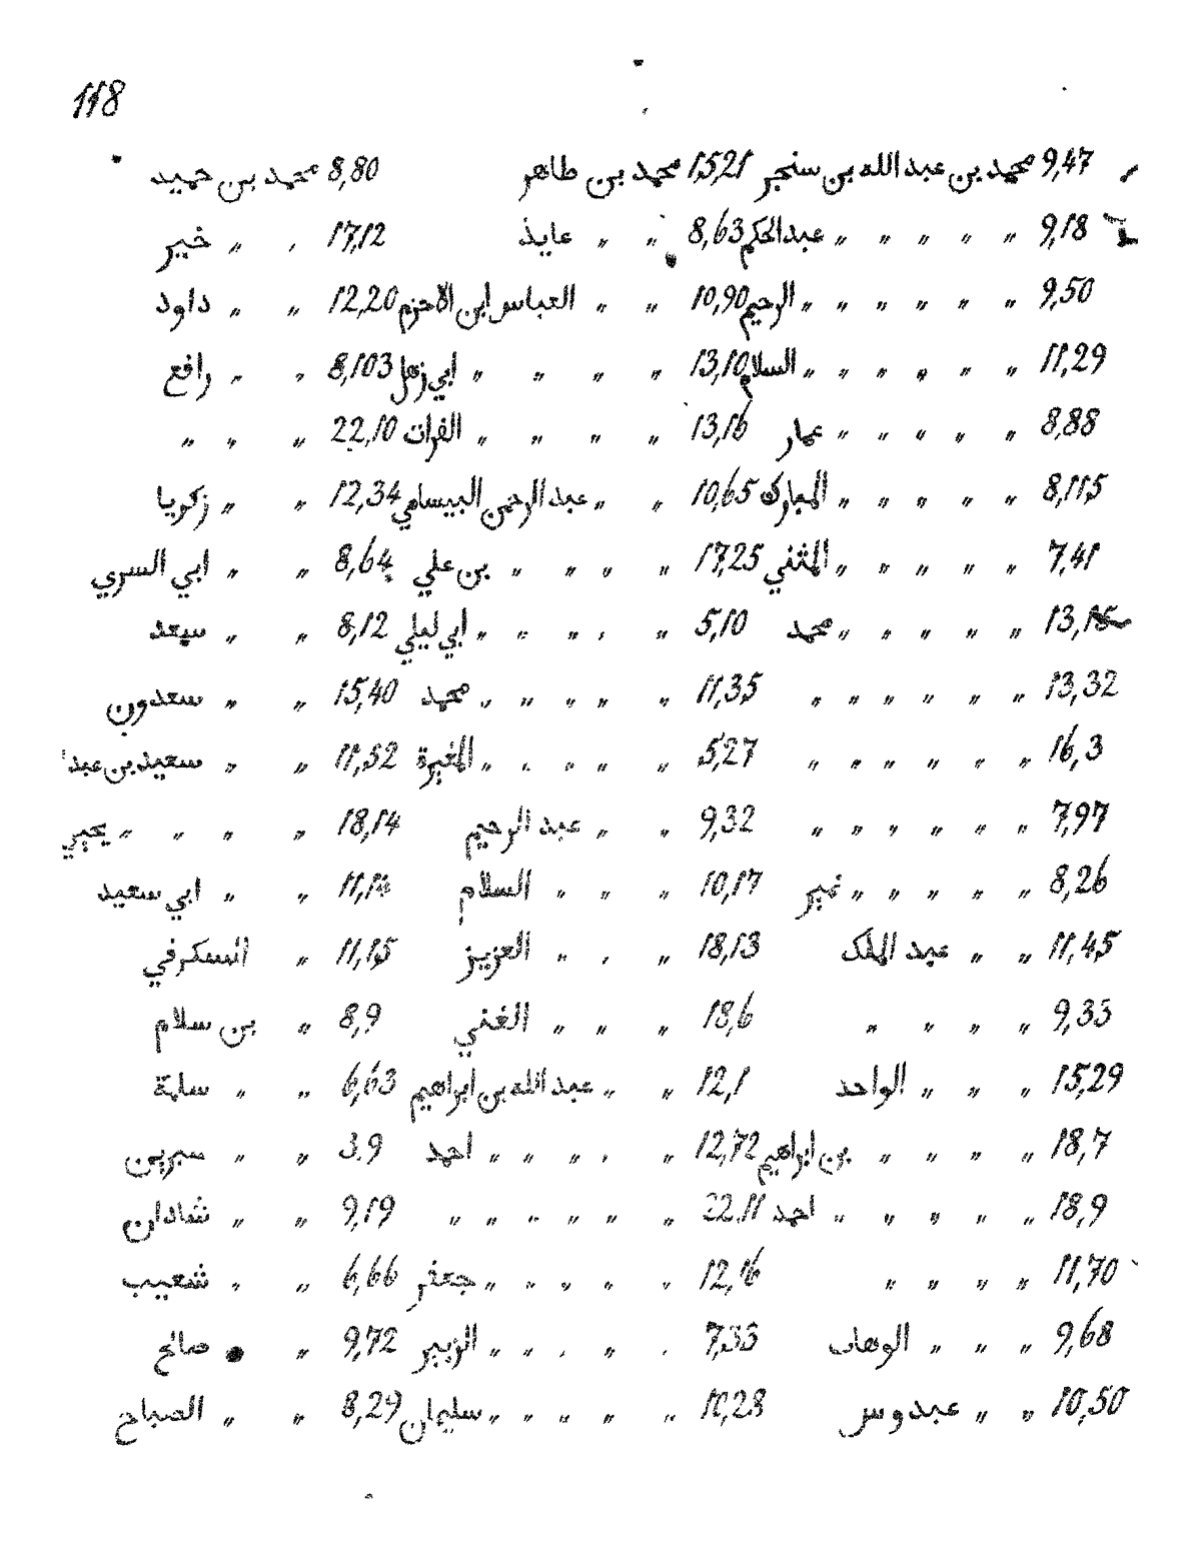 118
9,47 محمد بن عبد الله بن سنجر 15,21 محمد بن طاهر 8,80 محمد بن حميد
9,18 " " " " " عبد الحكم 8,63 " " عايذ 17,12 " " خير
9,50 " " " " " " الرحيم 10,90 " " العباس ابن الاخرم 12,20 " " داود
11,29 " " " " " " السلام 13,10 " " " " ابي زهل 8,103 " " رافع
8,88 " " " " " عمار 13,16 " " " " الفرات 22,10 " " " "
8,115 " " " " " المبارك 10,65 " " عبد الرحمن البيسامي 12,34 " " زكريا
7,41 " " " " " المثني 17,25 " " " " بن علي 8,64 " " ابي السري
13,15 " " " " " محمد 5,10 " " " " " ابي ليلي 8,12 " " سعد
13,32 " " " " " " 11,35 " " " " " محمد 15,40 " " سعدون
16,3 " " " " " " 5,27 " " " " " المغيرة 11,52 " " سعيد بن عبد ا
7,97 " " " " " " 9,32 " " عبد الرحيم 18,14 " " " " " يحيي
8,26 " " " " " نمير 10,17 " " " السلام 11,14 " " ابي سعيد
11,45 " " عبد الملك 18,13 " " " العزيز 11,15 " السكرفي
9,33 " " " " 18,6 " " " الغني 8,9 " بن سلام
15,29 " " " الواحد 12,1 " " عبد الله بن ابراهيم 6,63 " " سلمة
18,7 " " " " بن ابراهيم 12,72 " " " " " احمد 3,9 " " سيرين
18,9 " " " " " احمد 22,11 " " " " " " 9,19 " " شاذان
11,70 " " " " 12,16 " " " " " جعفر 6,66 " " شعيب
9,68 " " " الوهاب 7,33 " " " " " الزبير 9,72 " صالح
10,50 " " عبدوس 10,28 " " " " " سليمان 8,29 " " الصباح